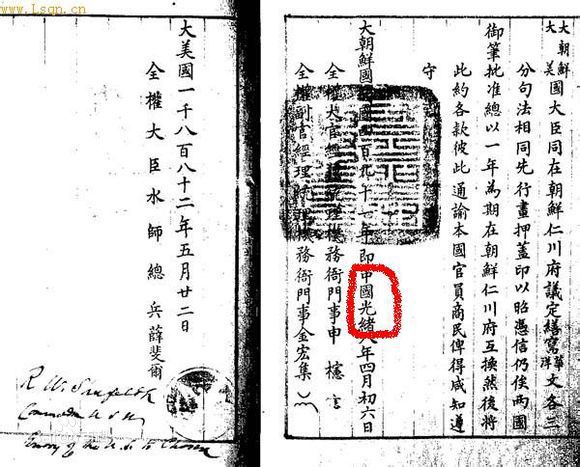 www.Lsqn.cn
大朝鮮大美國大臣同在朝鮮仁川府議定繕寫華洋文各三
分句法相同先行畫押蓋印以昭憑信仍俟兩國
御筆批准總以一年為期在朝鮮仁川府互換然後將
此約各款彼此通諭本國官員商民俾得咸知遵
守
大朝鮮國四百九十一年即中國光緒八年四月初六日
全權大官經理機務衙門事申櫶
全權副官經理機務衙門事金宏集
大美國一千八百八十二年五月廿二日
全權大臣水師總兵薛斐爾
R. W. Shufeldt
Commodore U.S.N.
Envoy of the U.S. to Chosen